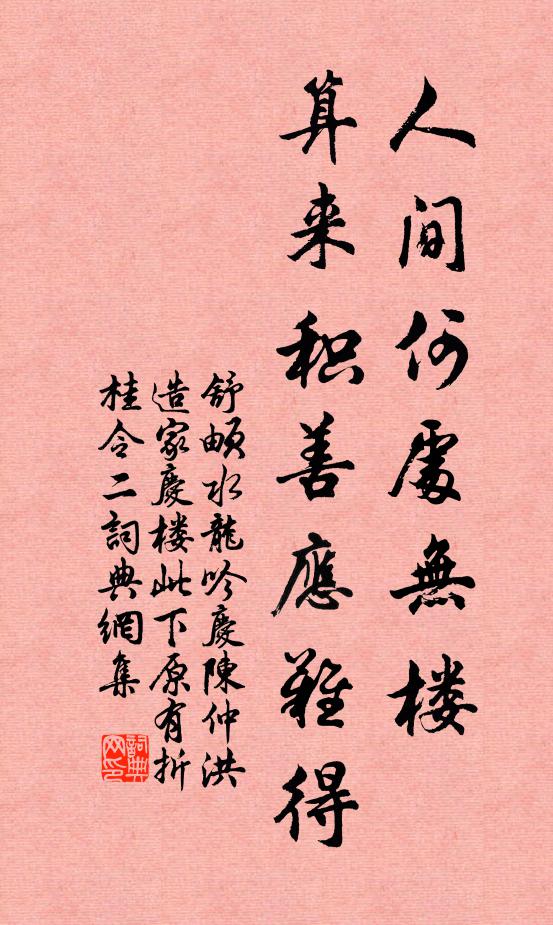 人间何處無楼
算来积善應難得
舒頔水龍吟慶陳仲洪
造家慶楼此下原有折
桂令二詞典網集
詞典网印